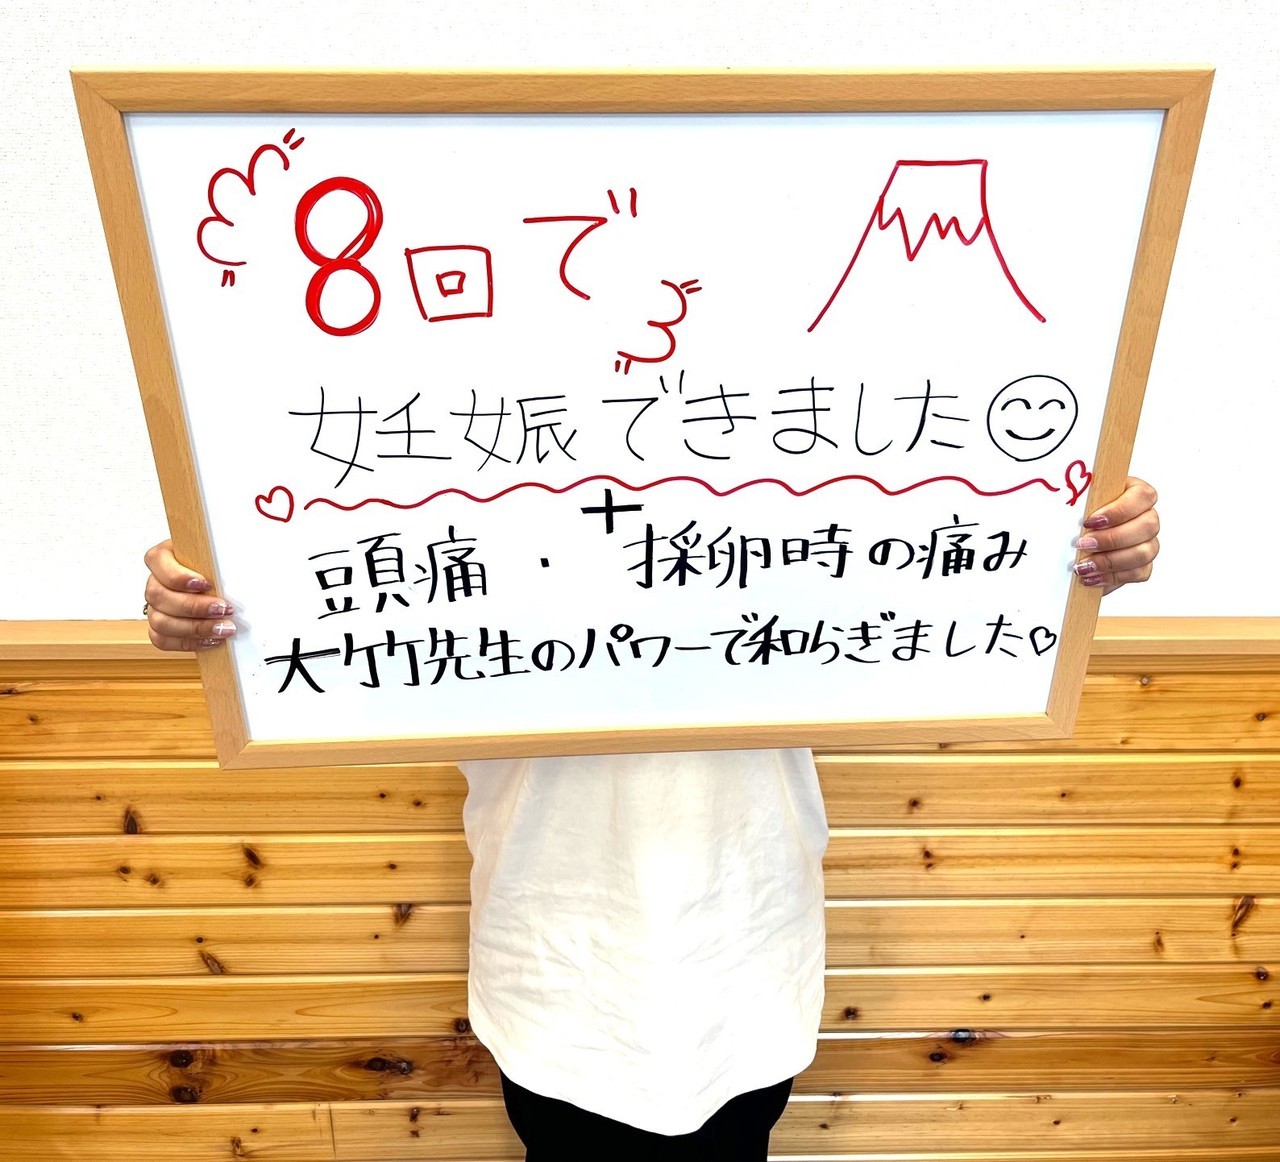 8回で
妊娠できました
+
頭痛・採卵時の痛み
大竹先生のパワーで和らぎました♡